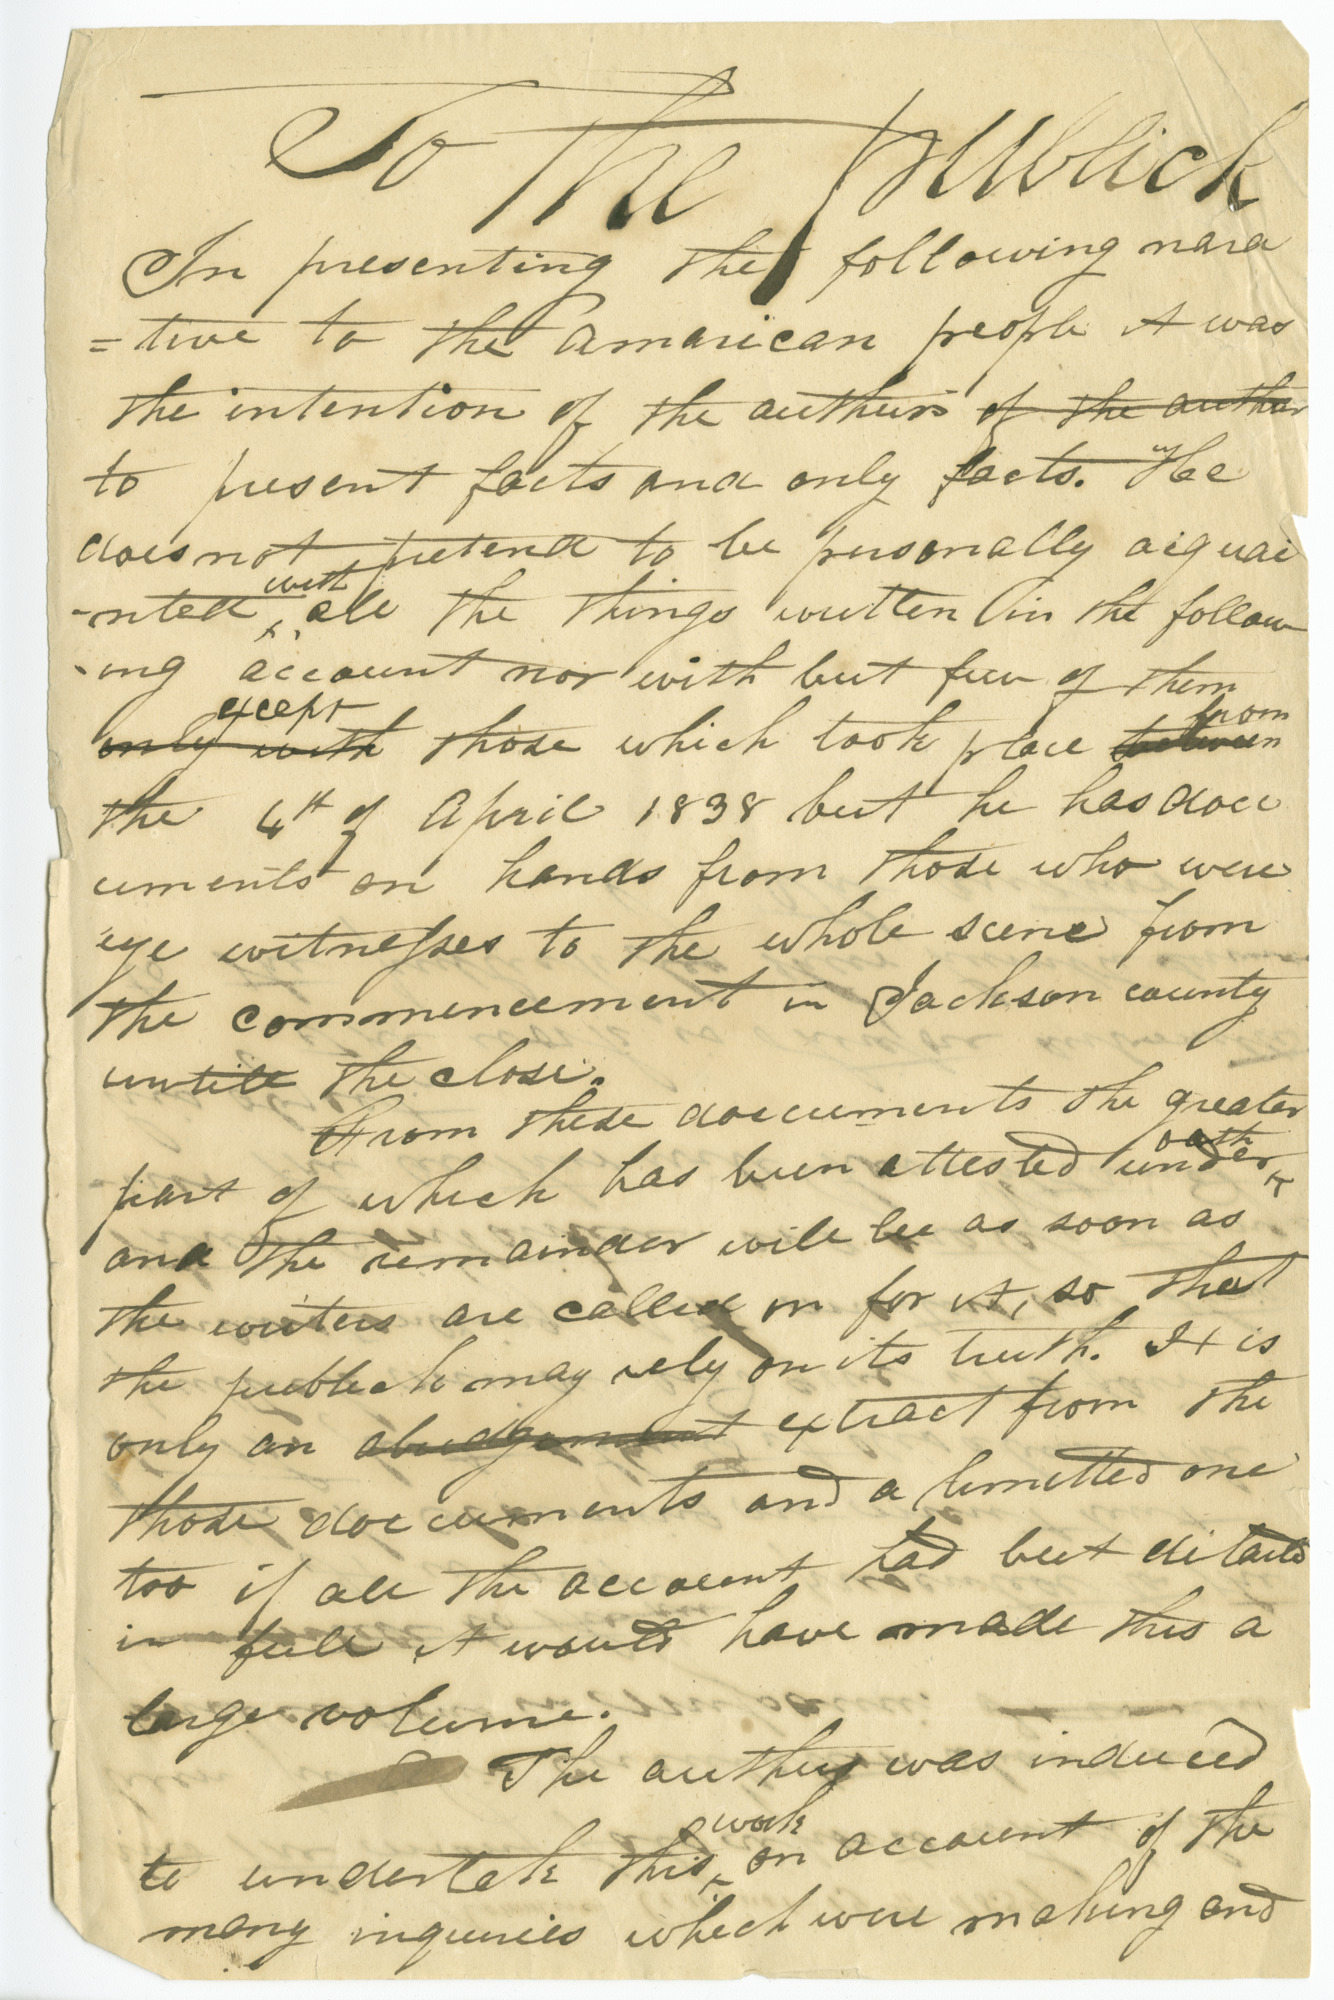 To The Publick
In presenting the following nara
=tive to the Amarican people it was
the intention of the authurs of the author
to present facts and only facts. He
does not pretend to be personally acquai
-nted with all the things written in the follow
-ing account nor with but few of them
only with except those which took place between from
the 4th of April 1838 but he has docu
uments on hands from those who were
eye witnesses to the whole scene from
the commencement in Jackson county
untill the close.
From these doccuments the greater
part of which has been attested under oath
and the remainder will be as soon as
the writers are called on for it, so that
the publick may rely on its truth. It is
only an abridgement extract from the
those doccuments and a limitted one
too if all the account had but ditaild
in full it would have made this a
large volume.
The authur was induced
to undertak this work on account of the
many inquiries which were making and